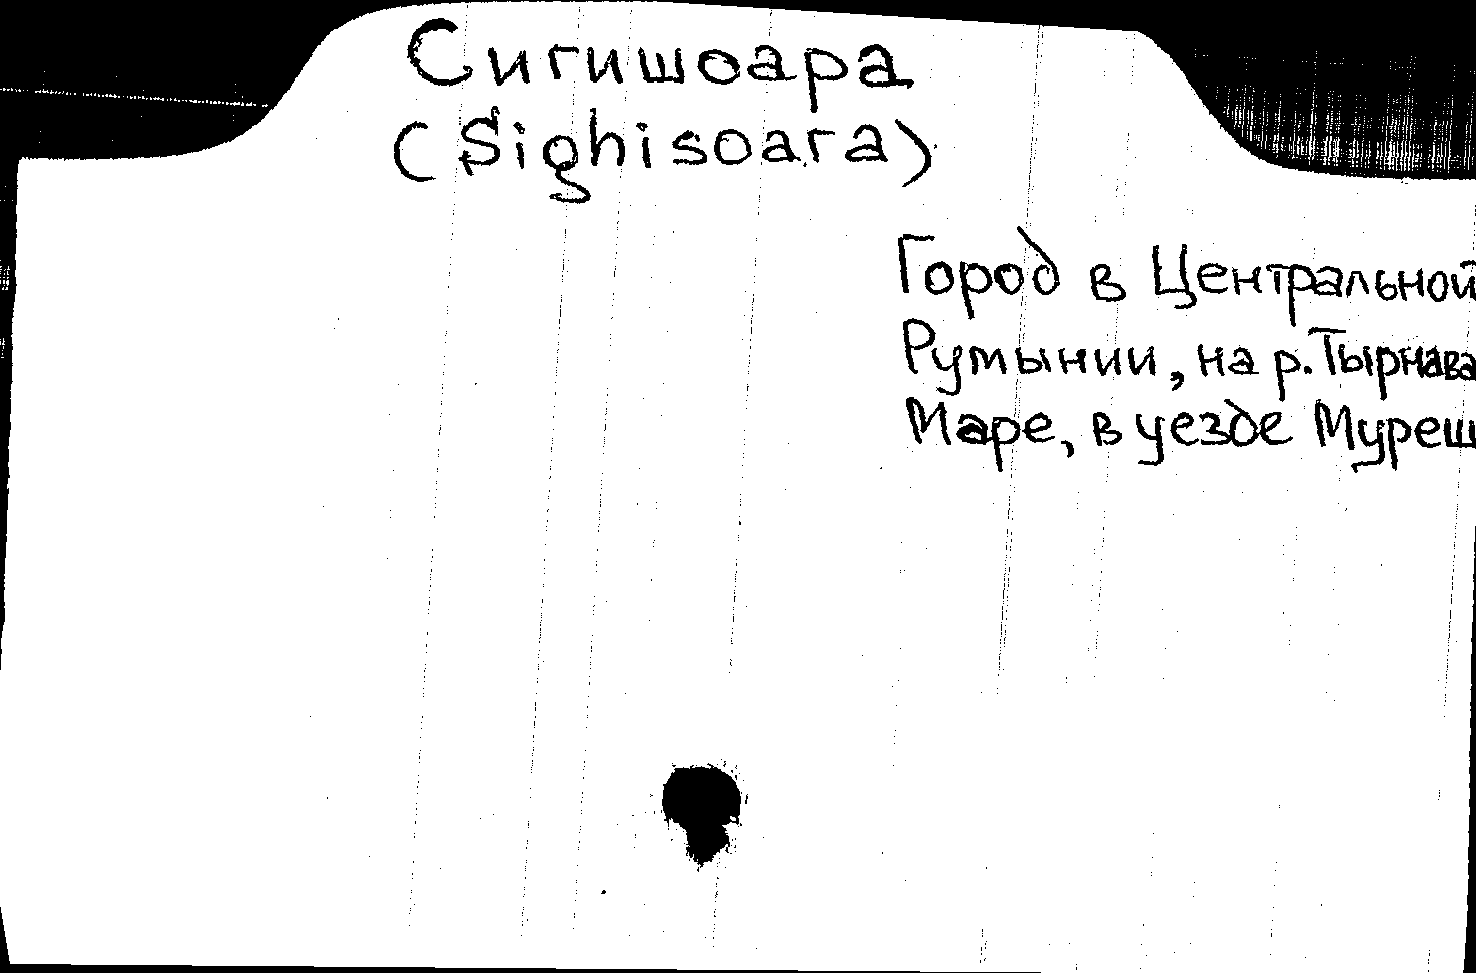 Сигишоара
(Sighisoara)
Город в Центральной
Румынии, на р. Тырнава
Маре, в уезде Муреш